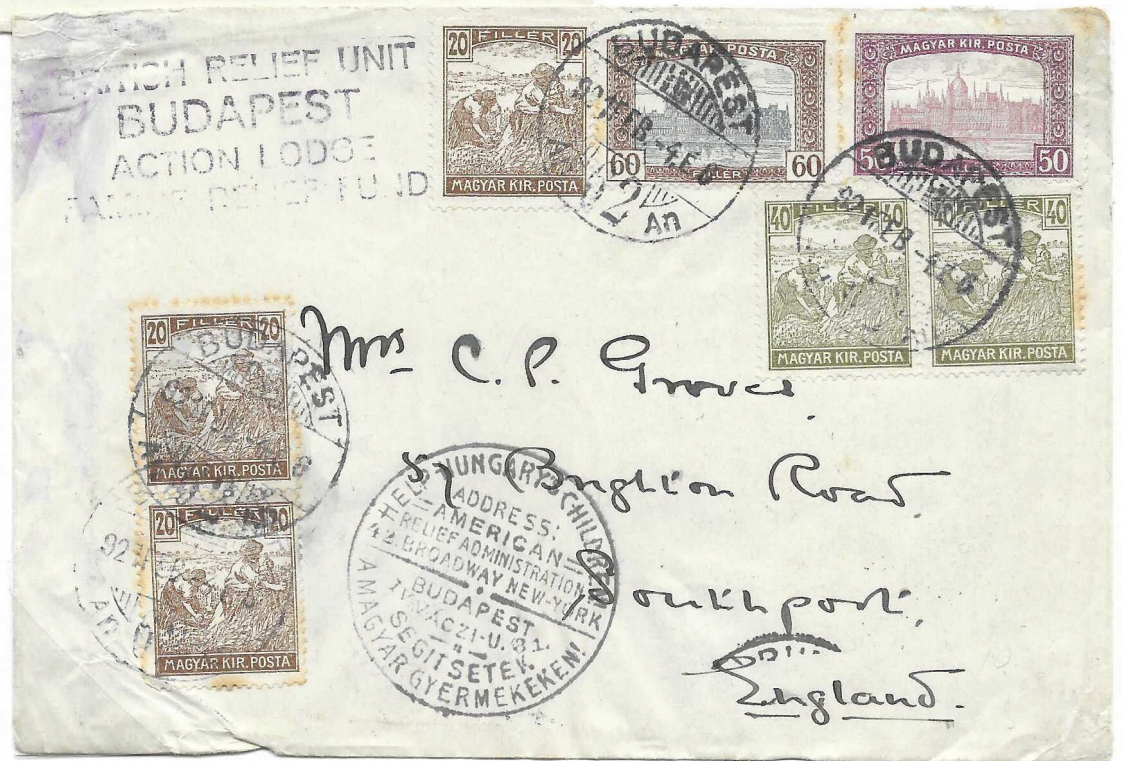 BRITISH RELIEF UNIT
BUDAPEST
ACTION LODGE
FAMINE RELIEF FUND
20 FILLÉR 20
MAGYAR KIR. POSTA
MAGYAR KIR. POSTA
60 FILLÉR 60
MAGYAR KIR. POSTA
50 50
BUDAPEST
An
BUDAPEST
40 FILLÉR 40
MAGYAR KIR. POSTA
40
MAGYAR KIR. POSTA
20 FILLÉR 20
MAGYAR KIR. POSTA
BUDAPEST
20 FILLÉR 20
MAGYAR KIR. POSTA
Mrs C. P. Groves
57 Brighton Road
Southport
England.
HELP HUNGARY'S CHILDREN
ADDRESS:
AMERICAN
RELIEF ADMINISTRATION
42 BROADWAY NEW-YORK
BUDAPEST
SEGITSETEK
A MAGYAR GYERMEKEKEN!